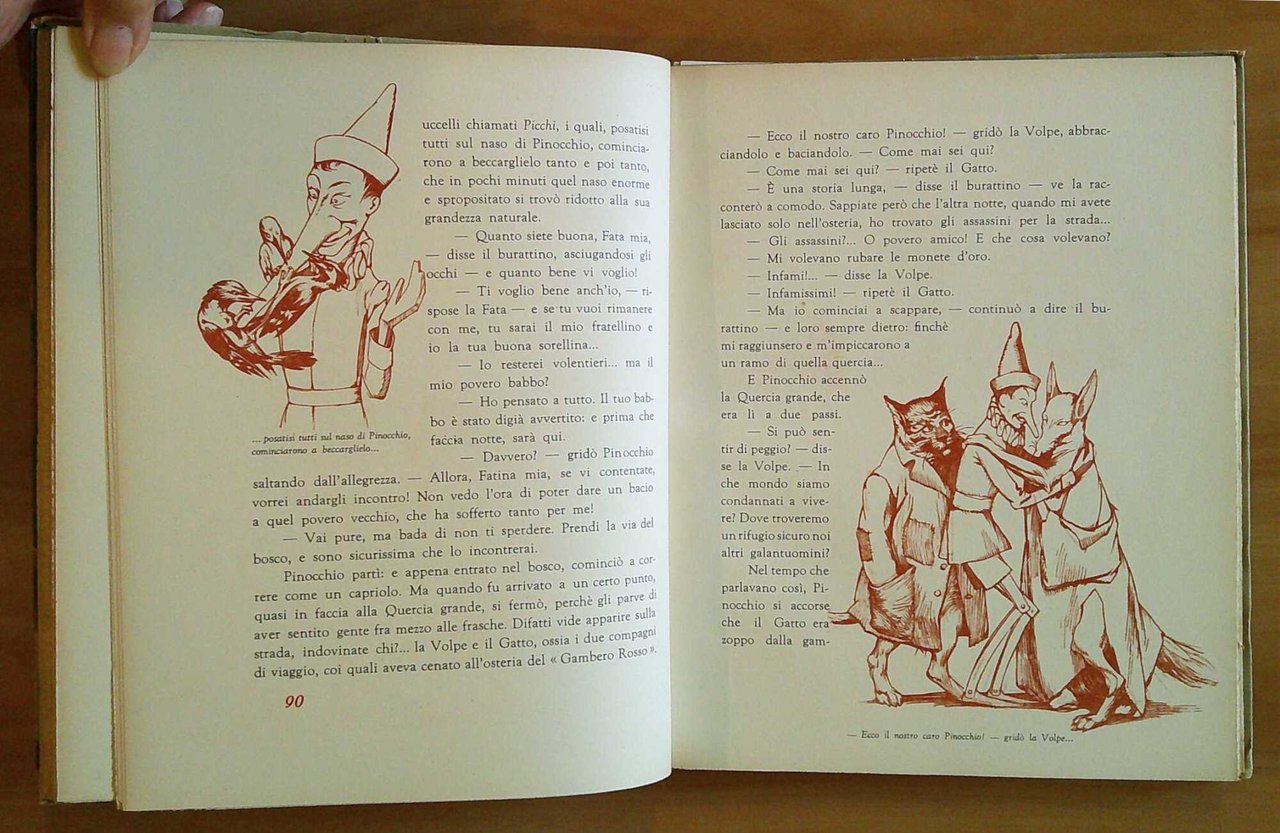 uccelli chiamati Picchi, i quali, posatisi
tutti sul naso di Pinocchio, comincia-
rono a beccarglielo tanto e poi tanto,
che in pochi minuti quel naso enorme
e spropositato si trovò ridotto alla sua
grandezza naturale.
— Quanto siete buona, Fata mia,
— disse il burattino, asciugandosi gli
occhi — e quanto bene vi voglio!
— Ti voglio bene anch'io, — ri-
spose la Fata — e se tu vuoi rimanere
con me, tu sarai il mio fratellino e
io la tua buona sorellina...
— Io resterei volentieri... ma il
mio povero babbo?
— Ho pensato a tutto. Il tuo bab-
bo è stato digià avvertito: e prima che
faccia notte, sarà qui.
— Davvero? — gridò Pinocchio
... posatisi tutti sul naso di Pinocchio,
cominciarono a beccarglielo...
saltando dall'allegrezza. — Allora, Fatina mia, se vi contentate,
vorrei andargli incontro! Non vedo l'ora di poter dare un bacio
a quel povero vecchio, che ha sofferto tanto per me!
— Vai pure, ma bada di non ti sperdere. Prendi la via del
bosco, e sono sicurissima che lo incontrerai.
Pinocchio partì: e appena entrato nel bosco, cominciò a cor-
rere come un capriolo. Ma quando fu arrivato a un certo punto,
quasi in faccia alla Quercia grande, si fermò, perchè gli parve di
aver sentito gente fra mezzo alle frasche. Difatti vide apparire sulla
strada, indovinate chi?... la Volpe e il Gatto, ossia i due compagni
di viaggio, coi quali aveva cenato all'osteria del « Gambero Rosso ».
90
— Ecco il nostro caro Pinocchio! — gridò la Volpe, abbrac-
ciandolo e baciandolo. — Come mai sei qui?
— Come mai sei qui? — ripetè il Gatto.
— È una storia lunga, — disse il burattino — ve la rac-
conterò a comodo. Sappiate però che l'altra notte, quando mi avete
lasciato solo nell'osteria, ho trovato gli assassini per la strada...
— Gli assassini?... O povero amico! E che cosa volevano?
— Mi volevano rubare le monete d'oro.
— Infami!... — disse la Volpe.
— Infamissimi! — ripetè il Gatto.
— Ma io cominciai a scappare, — continuò a dire il bu-
rattino — e loro sempre dietro: finchè
mi raggiunsero e m'impiccarono a
un ramo di quella quercia...
E Pinocchio accennò
la Quercia grande, che
era lì a due passi.
— Si può sen-
tir di peggio? — dis-
se la Volpe. — In
che mondo siamo
condannati a vive-
re? Dove troveremo
un rifugio sicuro noi
altri galantuomini?
Nel tempo che
parlavano così, Pi-
nocchio si accorse
che il Gatto era
zoppo dalla gam-
— Ecco il nostro caro Pinocchio! — gridò la Volpe...